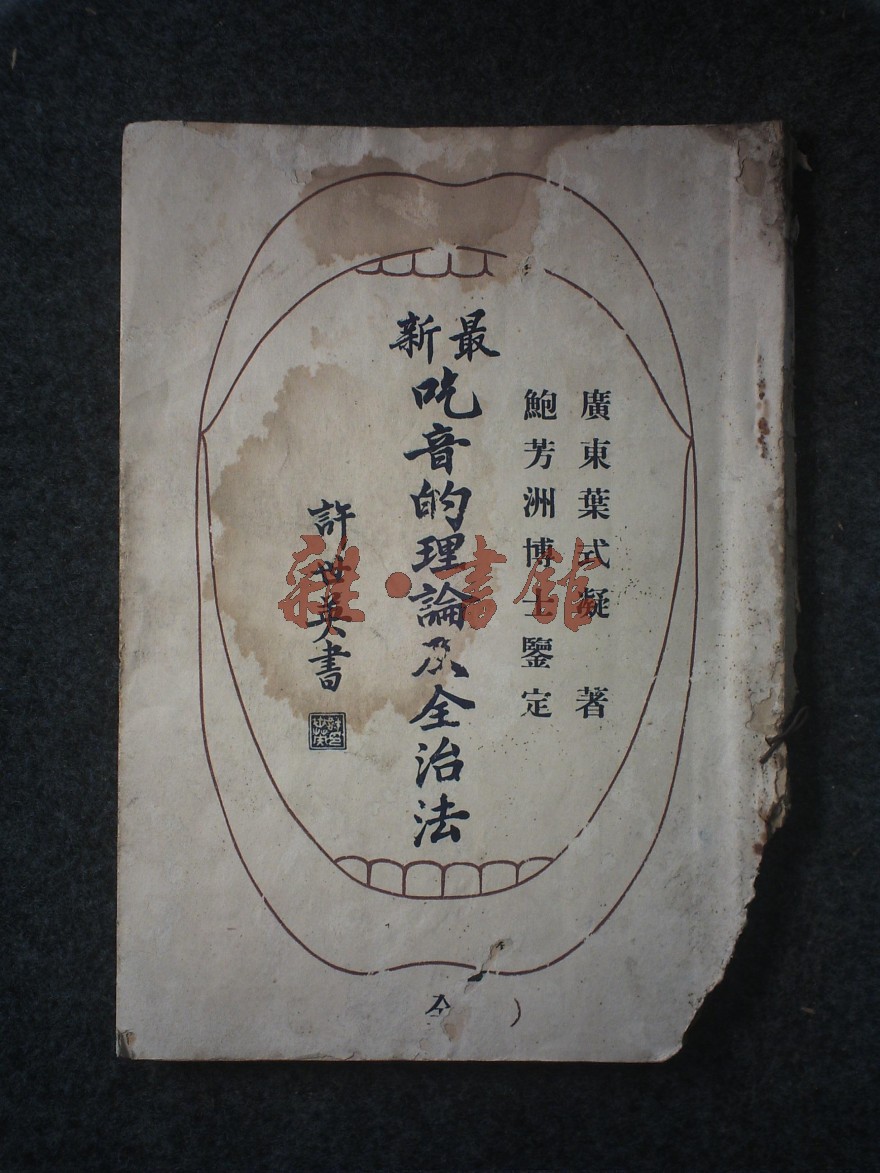 廣東葉式凝 著
鮑芳洲博士鑒定
最新
吃音的理論及全治法
許世英書
許世英印
全
雜·書館